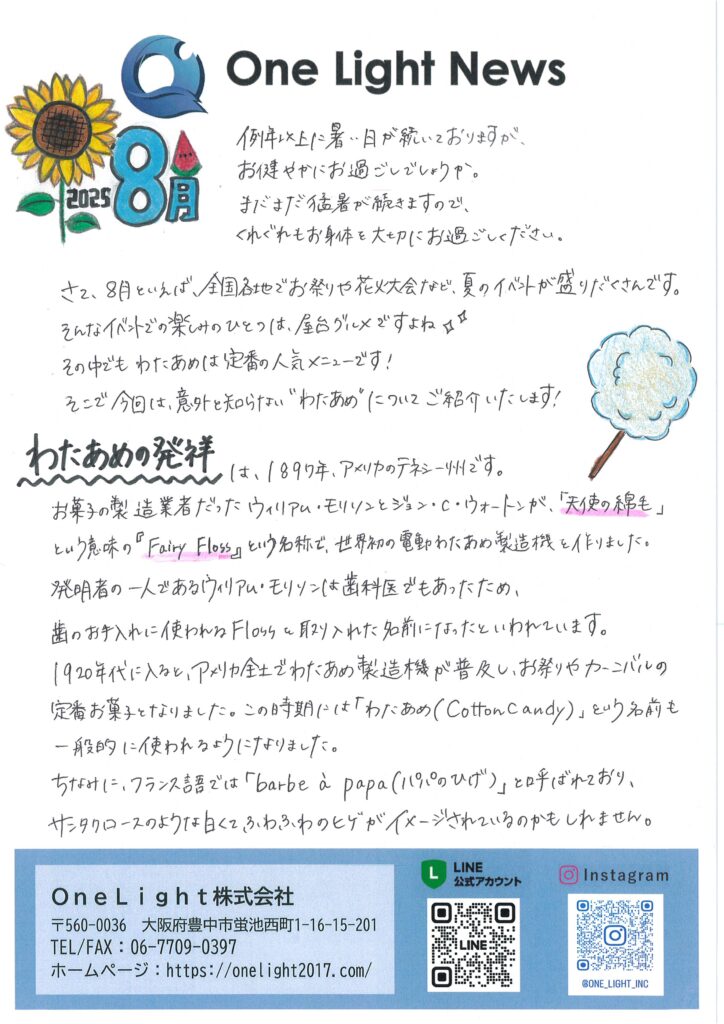 One Light News
2025
8月
例年以上に暑い日が続いておりますが、
お健やかにお過ごしでしょうか。
まだまだ猛暑が続きますので、
くれぐれもお身体を大切にお過ごしください。
さて、8月といえば、全国各地でお祭りや花火大会など、夏のイベントが盛りだくさんです。
そんなイベントでの楽しみのひとつは、屋台グルメですよね
その中でも わたあめは定番の人気メニューです!
そこで今回は、意外と知らない"わたあめ"についてご紹介いたします!
わたあめの発祥は、1897年、アメリカのテネシー州です。
お菓子の製造業者だったウィリアム・モリソンとジョン・C・ウォートンが、「天使の綿毛」
という意味の『Fairy Floss』という名称で、世界初の電動わたあめ製造機を作りました。
発明者の一人であるウィリアム・モリソンは歯科医でもあったため、
歯のお手入れに使われるFlossを取り入れた名前になったといわれています。
1920年代に入ると、アメリカ全土でわたあめ製造機が普及し、お祭りやカーニバルの
定番お菓子となりました。この時期には「わたあめ(Cotton Candy)」という名前も
一般的に使われるようになりました。
ちなみに、フランス語では「barbe à papa(パパのひげ)」と呼ばれており、
サンタクロースのような白くてふわふわのヒゲがイメージされているのかもしれません。
OneLight株式会社
〒560-0036 大阪府豊中市蛍池西町1-16-15-201
TEL/FAX:06-7709-0397
ホームページ:https://onelight2017.com/
L
LINE
公式アカウント
LINE
Instagram
@ONE_LIGHT_INC